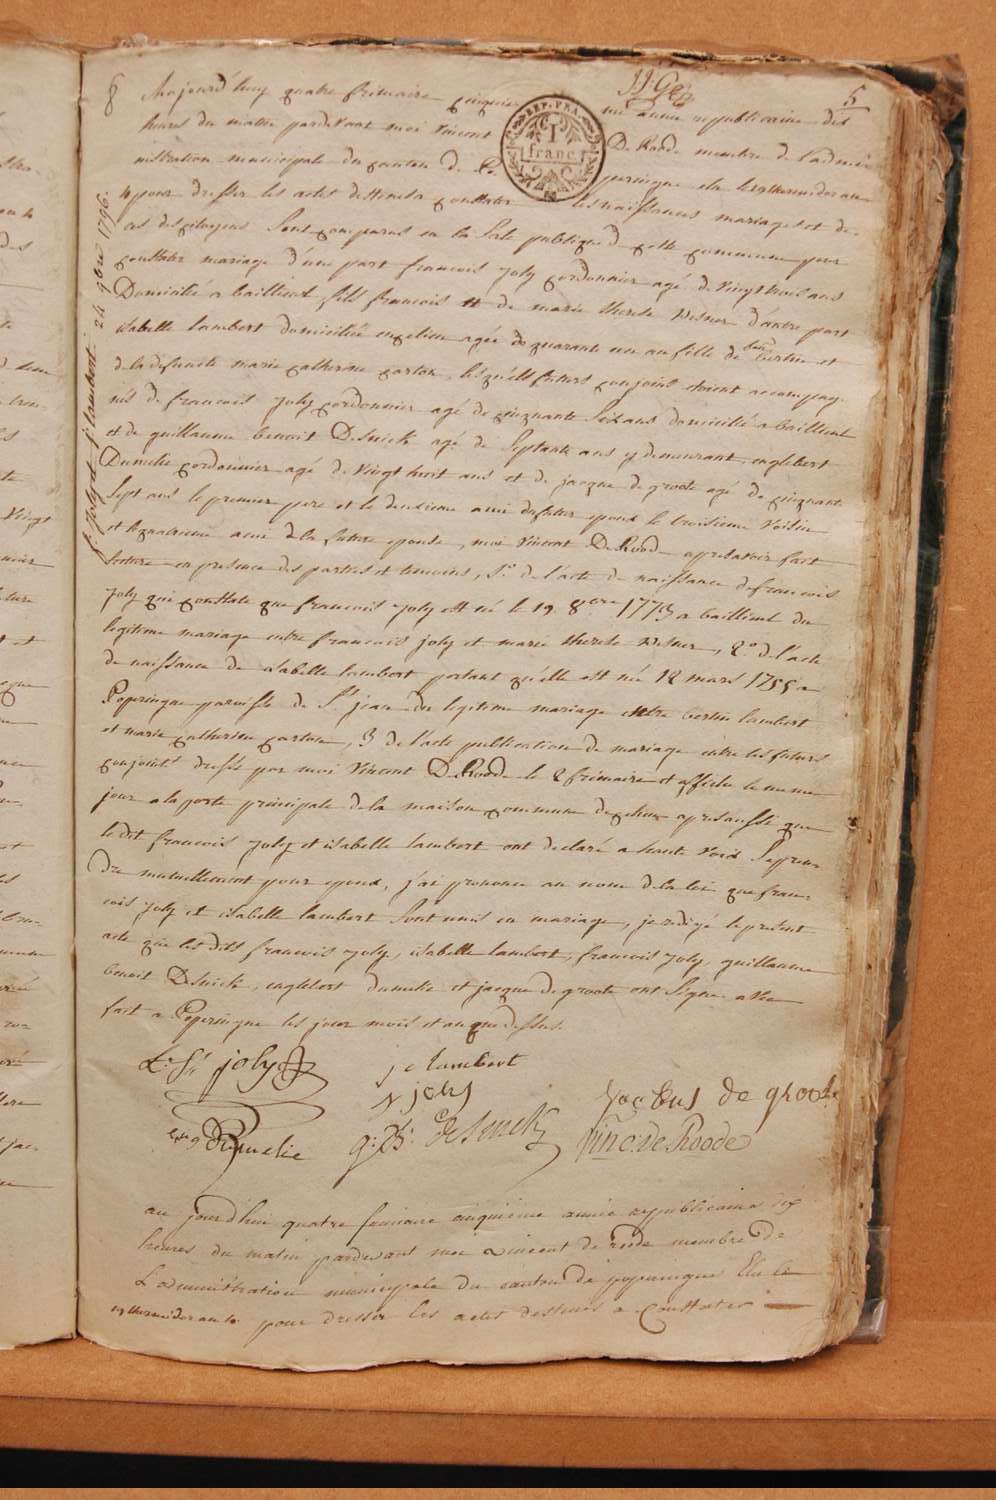 8
5
REP. FRA.
1 franc
f. Joly et j. lambert. 24 9bre 1796.
Aujourd'huy quatre frimaire cinquieme année republicaine dix
heures du matin pardevant moi Vincent De Roode membre de l'admi-
nistration municipale du canton de Poperingue elu le 19 thermidor an
4 pour dresser les actes destinés a constater les naissances mariages et de-
cés des citoyens Sont comparus en la Sale publique de cette commune pour
constater mariage d'une part francois Joly cordonnier agé de Vingt trois ans
Domicilié a bailleul fils francois et de marie therese d'autre part
isabelle lambert domiciliée agée de quarante un an fille de feu bertin et
de la defuncte marie catherine carton, lesquels futurs conjoins etoient accompag-
nés de francois Joly cordonnier agé de cinquante Six ans domicilié a bailleul
et de guillaume benoit Desnick agé de Septante ans y demeurant, englebert
Dumelie cordonnier agé de Vingt huit ans et de jacque de groote agé de cinquante
Sept ans le premier pere et le deuxieme ami du futur epoux le troisieme Voisin
et le quatrieme ami de la future epouse, moi Vincent De Roode apres avoir fait
lecture en presence des parties et temoins, 1o. de l'acte de naissance de francois
Joly qui constate que francois Joly est né le 19 8bre 1773 a bailleul du
legitime mariage entre francois joly et marie therese, 2.o de l'acte
de naissance de isabelle lambert portant qu'elle est née 12 mars 1755 a
Poperingue paroisse de St jean du legitime mariage entre bertin lambert
et marie catherine carton, 3 de l'acte publication de mariage entre les futurs
conjoints dressé par moi Vincent De Roode le 2 frimaire et affiché le meme
jour a la porte principale de la maison commune apres aussi que
le dit francois Joly et isabelle lambert ont declaré a haute Voix Se pren-
dre mutuellement pour epoux, j'ai prononcé au nom de la loi que fran-
cois Joly et isabelle lambert Sont unis en mariage, je redigé le present
acte que les dits francois Joly, isabelle lambert, francois Joly, guillaume
benoit Desnick, englebert dumelie et jacque de groote ont Signé avec
fait a Poperingue les jour mois et an que dessus.
joly
lambert
joly
jacobus de groote
Dumelie
g: B: deSnick
Vinc: de Roode
au jourd'hui quatre frimaire cinquieme année republicaine dix
heures du matin pardevant moi vincent de roode membre de
L'administration municipale du canton de poperingue Elu le
19 thermidor an 4 pour dresser les actes destinés a constater